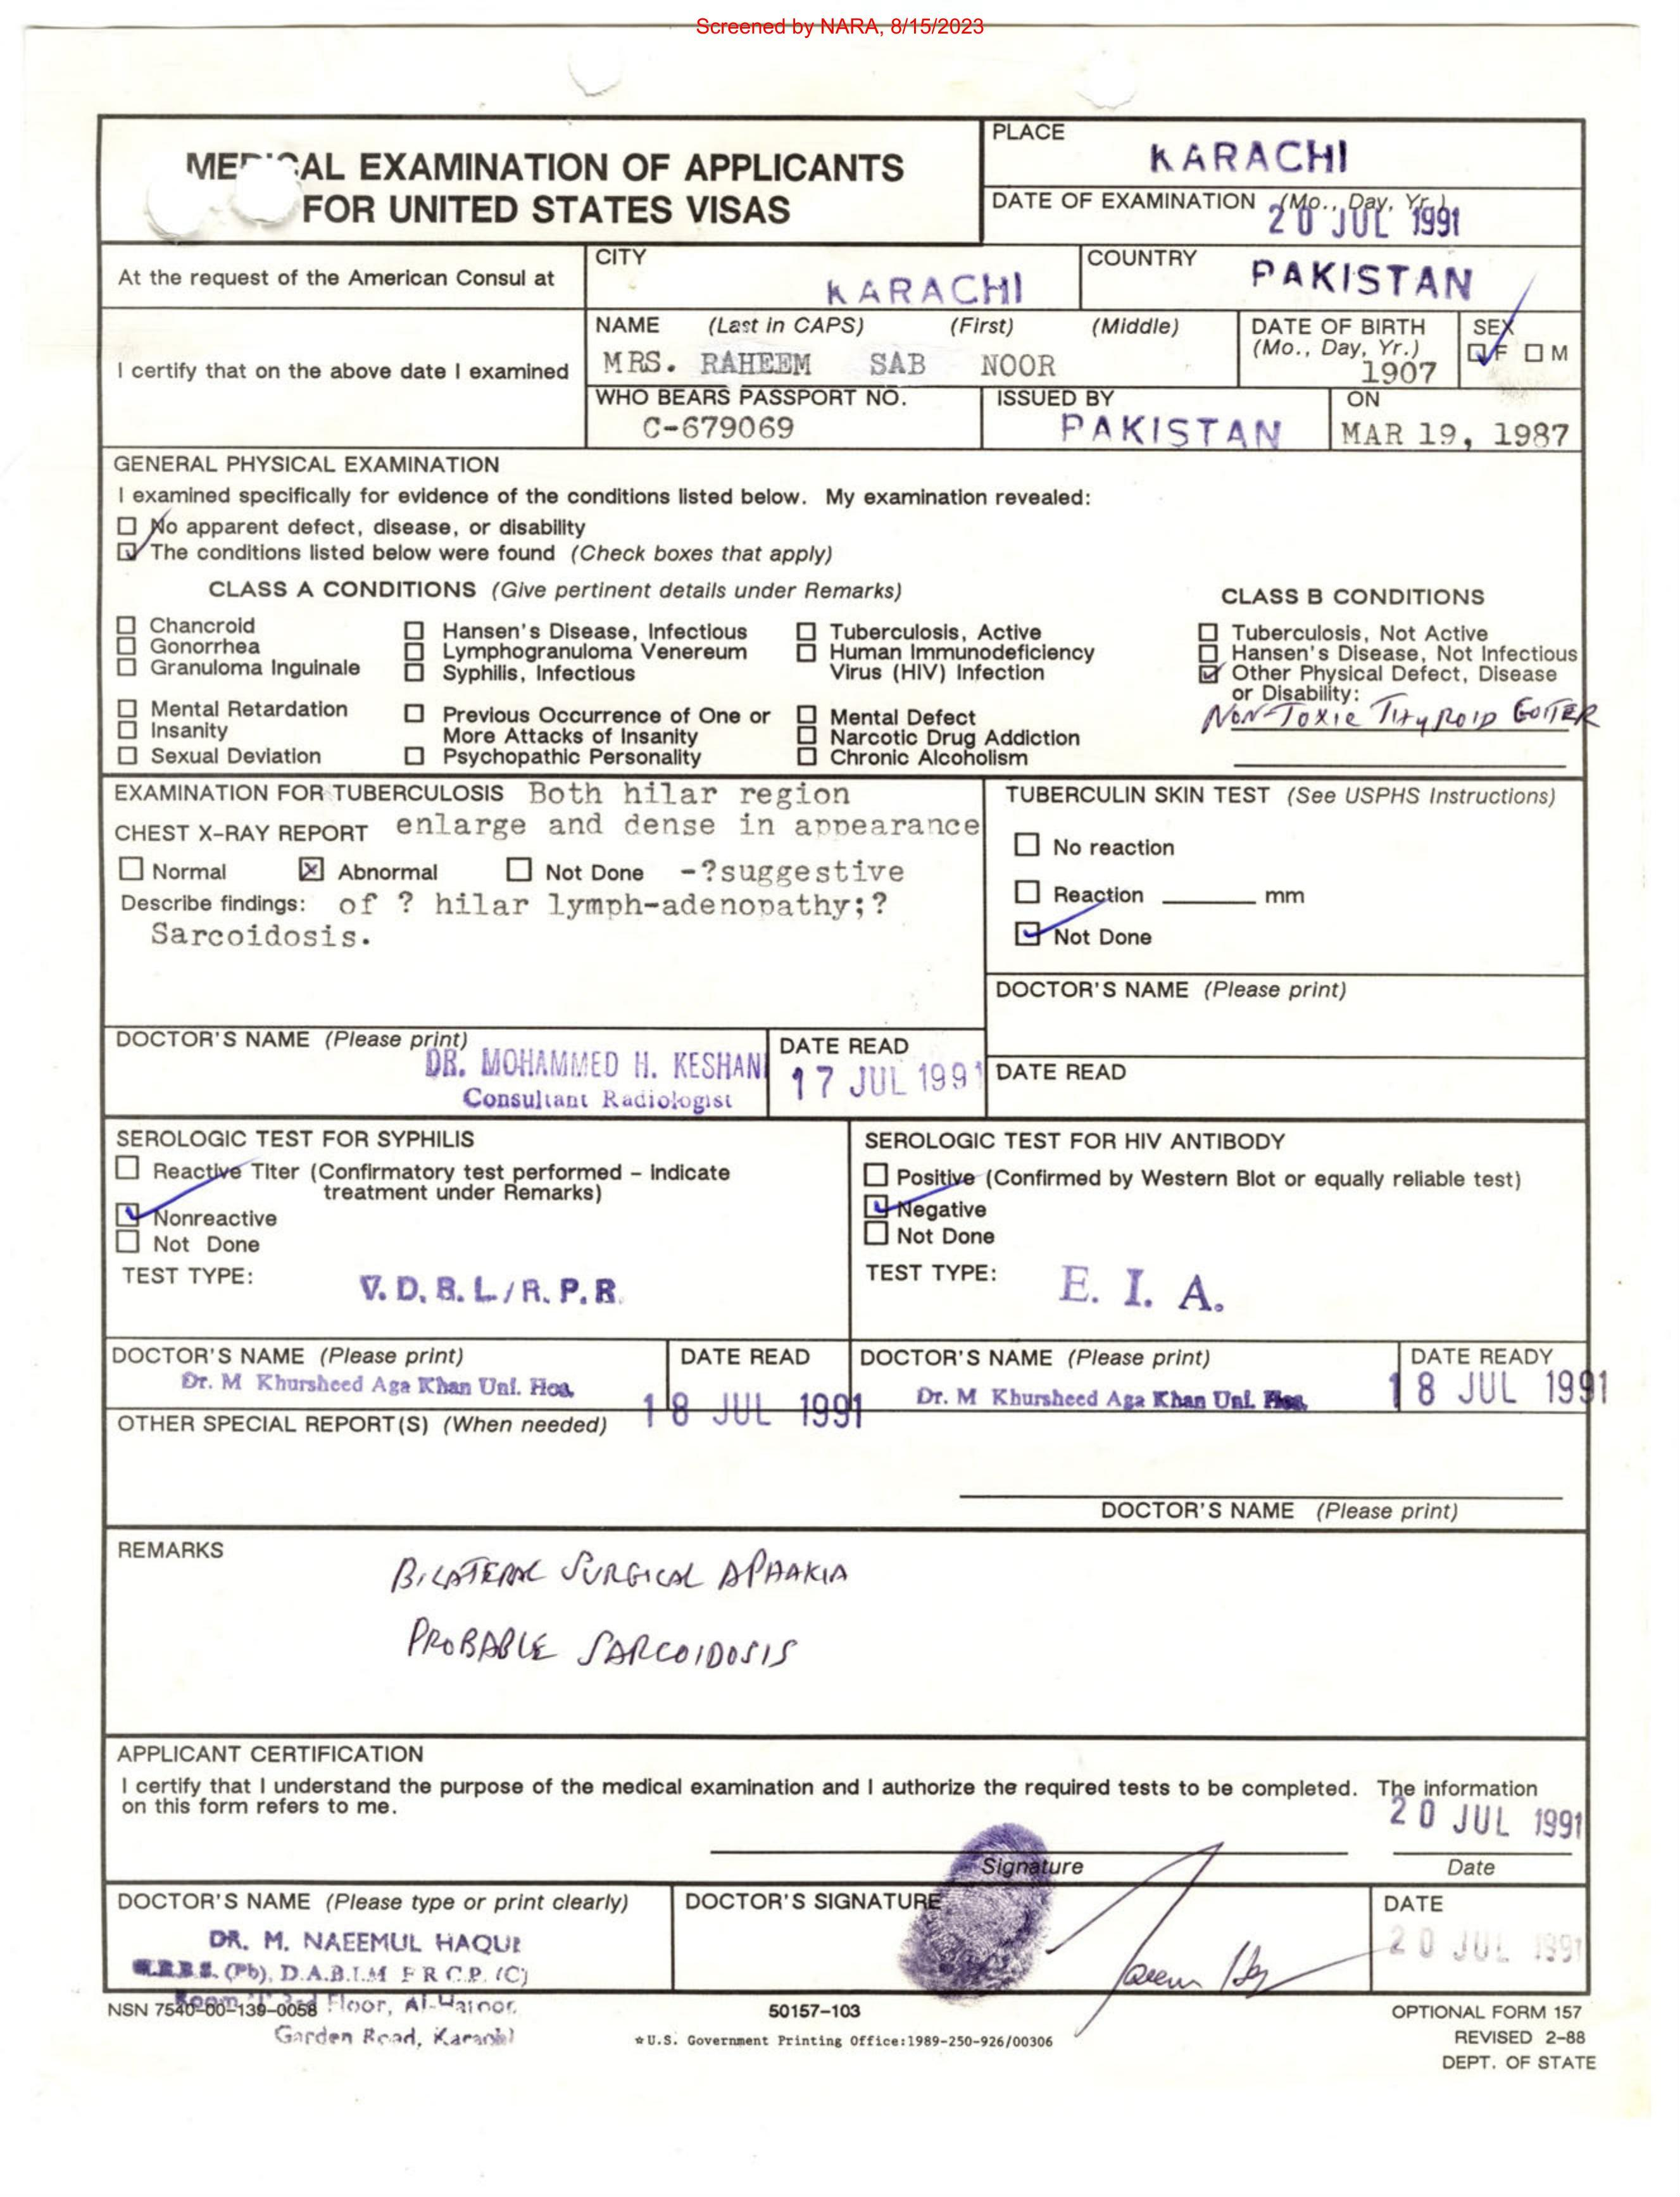 Screened by NARA, 8/15/2023
MEDICAL EXAMINATION OF APPLICANTS
FOR UNITED STATES VISAS
PLACE
KARACHI
DATE OF EXAMINATION (Mo., Day, Yr.)
20 JUL 1991
At the request of the American Consul at
CITY
KARACHI
COUNTRY
PAKISTAN
I certify that on the above date I examined
NAME (Last in CAPS) (First) (Middle)
MRS. RAHEEM SAB NOOR
DATE OF BIRTH
(Mo., Day, Yr.)
1907
SEX
F M
WHO BEARS PASSPORT NO.
C-679069
ISSUED BY
PAKISTAN
ON
MAR 19, 1987
GENERAL PHYSICAL EXAMINATION
I examined specifically for evidence of the conditions listed below. My examination revealed:
No apparent defect, disease, or disability
The conditions listed below were found (Check boxes that apply)
CLASS A CONDITIONS (Give pertinent details under Remarks)
Chancroid
Gonorrhea
Granuloma Inguinale
Hansen's Disease, Infectious
Lymphogranuloma Venereum
Syphilis, Infectious
Tuberculosis, Active
Human Immunodeficiency
Virus (HIV) Infection
Mental Retardation
Insanity
Sexual Deviation
Previous Occurrence of One or
More Attacks of Insanity
Psychopathic Personality
Mental Defect
Narcotic Drug Addiction
Chronic Alcoholism
CLASS B CONDITIONS
Tuberculosis, Not Active
Hansen's Disease, Not Infectious
Other Physical Defect, Disease
or Disability:
NON-TOXIC THYROID GOITER
EXAMINATION FOR TUBERCULOSIS Both hilar region
CHEST X-RAY REPORT enlarge and dense in appearance
Normal Abnormal Not Done -?suggestive
Describe findings: of ? hilar lymph-adenopathy;?
Sarcoidosis.
TUBERCULIN SKIN TEST (See USPHS Instructions)
No reaction
Reaction mm
Not Done
DOCTOR'S NAME (Please print)
DATE READ
DOCTOR'S NAME (Please print)
DR. MOHAMMED H. KESHANI
Consultant Radiologist
DATE READ
17 JUL 1991
SEROLOGIC TEST FOR SYPHILIS
Reactive Titer (Confirmatory test performed - indicate
treatment under Remarks)
Nonreactive
Not Done
TEST TYPE:
V.D.R.L./R.P.R.
SEROLOGIC TEST FOR HIV ANTIBODY
Positive (Confirmed by Western Blot or equally reliable test)
Negative
Not Done
TEST TYPE:
E. I. A.
DOCTOR'S NAME (Please print)
Dr. M Khursheed Aga Khan Uni. Hos.
DATE READ
18 JUL 1991
DOCTOR'S NAME (Please print)
Dr. M Khursheed Aga Khan Uni. Hos.
DATE READY
18 JUL 1991
OTHER SPECIAL REPORT(S) (When needed)
DOCTOR'S NAME (Please print)
REMARKS
BILATERAL SURGICAL APHAKIA
PROBABLE SARCOIDOSIS
APPLICANT CERTIFICATION
I certify that I understand the purpose of the medical examination and I authorize the required tests to be completed. The information
on this form refers to me.
20 JUL 1991
Signature
Date
DOCTOR'S NAME (Please type or print clearly)
DR. M. NAEEMUL HAQUE
M.B.B.S. (Pb), D.A.B.I.M F R C.P. (C)
Floor,
Garden Road, Karachi
DOCTOR'S SIGNATURE
DATE
20 JUL 1991
NSN 7540-00-139-0058
50157-103
☆U.S. Government Printing Office:1989-250-926/00306
OPTIONAL FORM 157
REVISED 2-88
DEPT. OF STATE